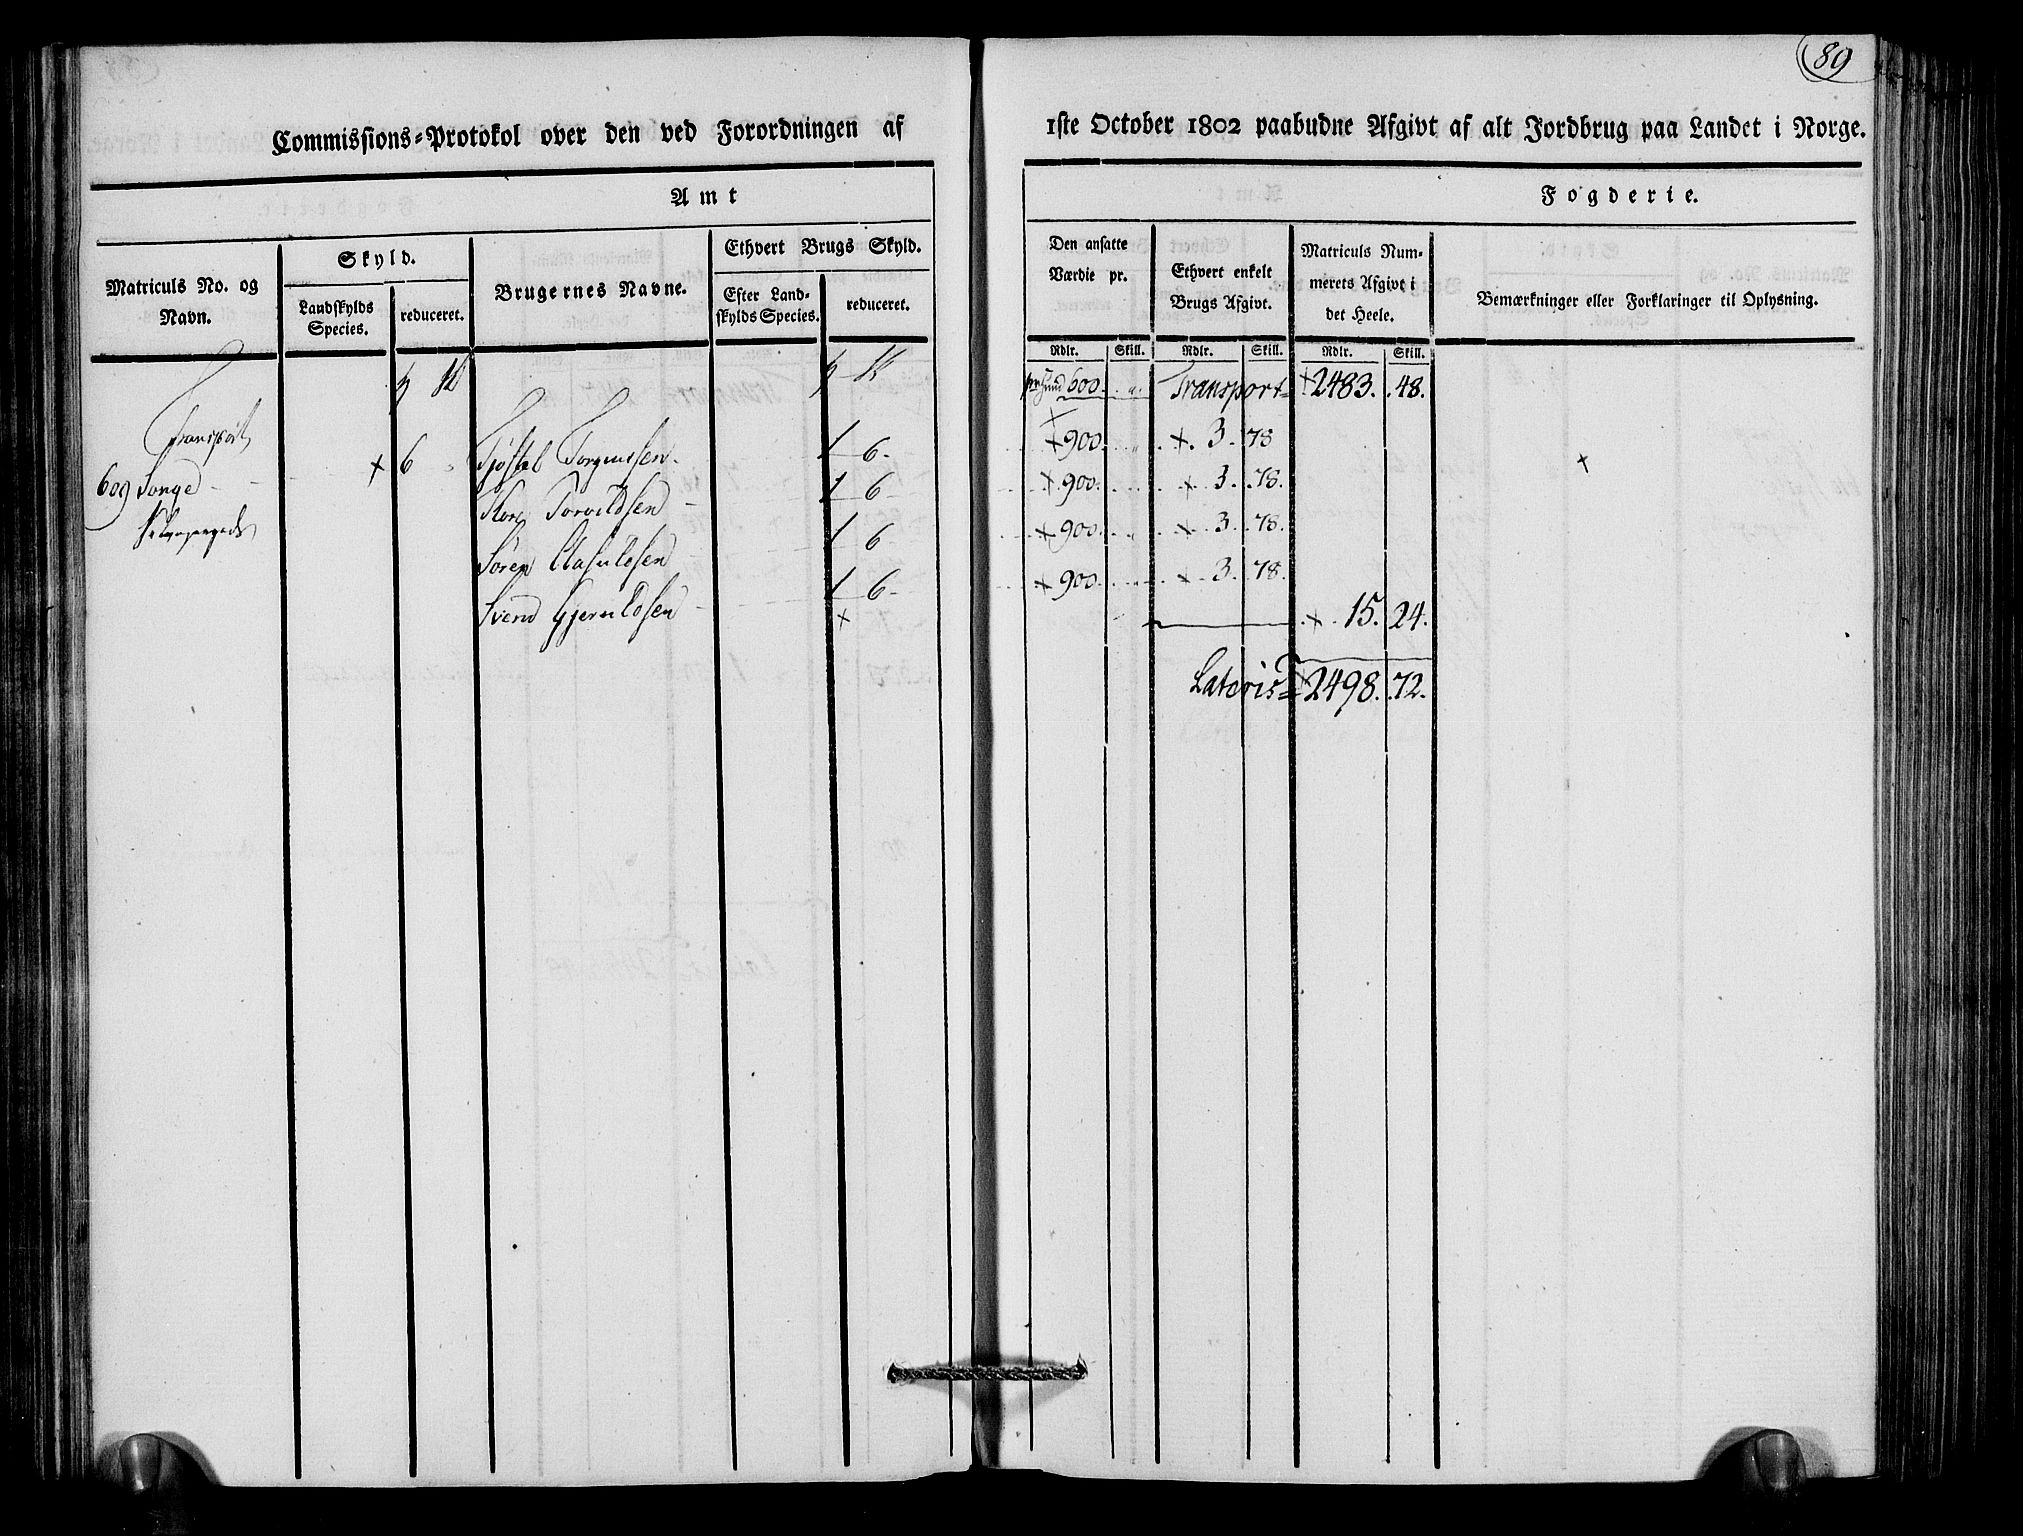 89
Commissions-Protokol over den ved Forordningen af 1ste October 1802 paabudne Afgivt af alt Jordbrug paa Landet i Norge.
Amt
Fogderie.
Matriculs No. og Navn.
Skyld.
Landskylds Species.
reduceret.
Brugernes Navne.
Ethvert Brugs Skyld.
Efter Landskylds Species.
reduceret.
Den ansatte Værdie pr.
Ethvert enkelt Brugs Afgivt.
Matriculs Nummerets Afgivt i det Heele.
Bemærkninger eller Forklaringer til Oplysning.
Rdlr. Skill. Rdlr. Skill. Rdlr. Skill.
Transport
600. Transport 2483. 48.
609 Songe + 6 Torgeussen 1 6 + 900 + 3. 78
Tore Torvildsen 1 6 + 900 + 3. 78.
Søren 1 6 + 900 + 3. 78.
Svend 1 6 + 900 + 3. 78.
+ + 15. 24.
Lateris 2498. 72.